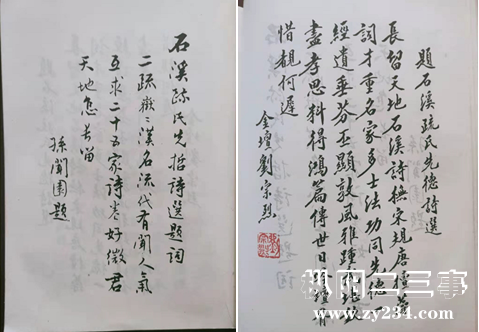 石溪疏氏先哲詩選題詞
二疏漢名流代有聞人氣
互求二十五家詩卷好微君
天地怎長留
孫聞園題
題石溪疏氏先德詩選
長留天地石溪詩撫宋規唐擅
詞才重名家多士法功同先德一
經遺垂芬丕顯敦風雅踵堪
盡孝思料得鴻篇傳世日
惜觀何遲
金壇劉宗烈
枞阳二三事
www.zy234.com